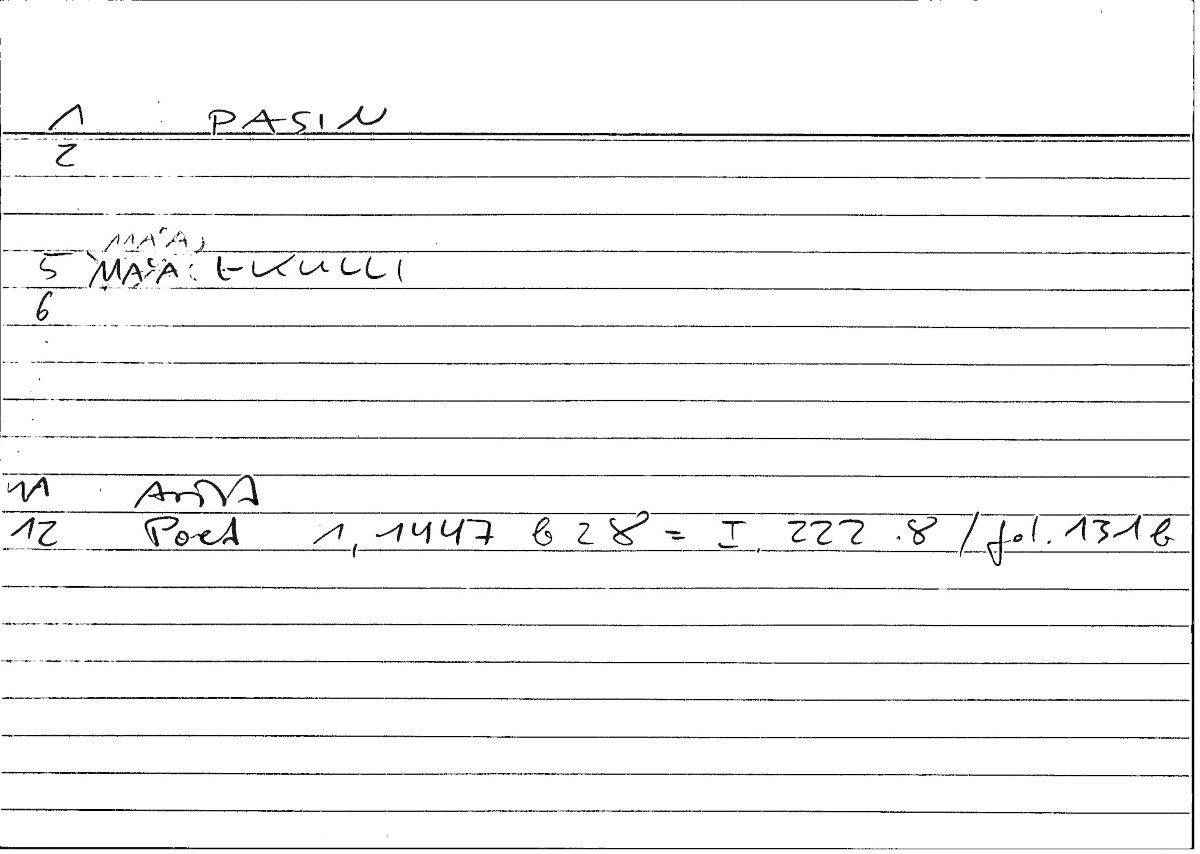 1 PASIN
2
MAʿA,
5 MAʿA: EKULLI
6
11
12 Poet 1, 1447 b 28 = I, 222 .8 / fol. 131b